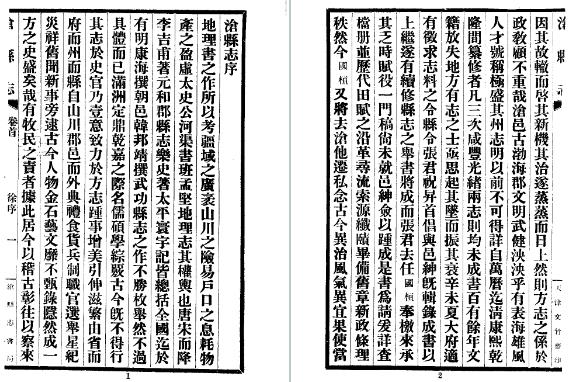 滄縣志序
地理書之作所以考疆域之廣袤山川之險易戶口之息耗物
產之盈虛太史公河渠書班孟堅地理志其權輿也唐宋而降
李吉甫著元和郡縣志樂史著太平寰宇記皆總括全國迄於
有明康海撰朝邑韓邦靖撰武功縣志之作不勝枚舉然不過
具體而已滿洲定鼎乾嘉之際名儒碩學綜覈古今旣不得行
其志於史官乃壹意致力於方志踵事增美引伸滋繁由省而
府而州而縣自山川郡邑而外典禮食貨兵制職官選舉星紀
災祥舊聞新事旁逮古今人物金石藝文靡不甄錄然成一
方之史盛矣哉有牧民之責者據此居今以稽古彰往以察來
縣志 卷首 徐序 一
1
因其故轍而啓其新機其治遂蒸蒸而日上然則方志之係於
政敎顧不重哉滄邑古渤海郡文明武健泱泱乎有表海雄風
人才號稱極盛其州志明以前不可得詳自萬曆迄清康熙乾
隆間纂修者凡三次咸豐光緒兩志則均未成書百有餘年文
籍放失地方有志之士亟思起其墜而振其衰辛未夏大府適
有徵求志料之令縣令張君祝昇首倡與邑紳旣輯錄成書以
上繼遂有續修縣志之舉書將成而張君去任國桓奉檄來承
其乏時賦役一門稿尙未就邑紳僉以踵成是書爲請爰詳查
檔册並歷代田賦之沿革尋流索源纖賾畢備舊章新政條理
秩然今國桓又將去滄他遷私念古今異治風氣異宜果使當
2